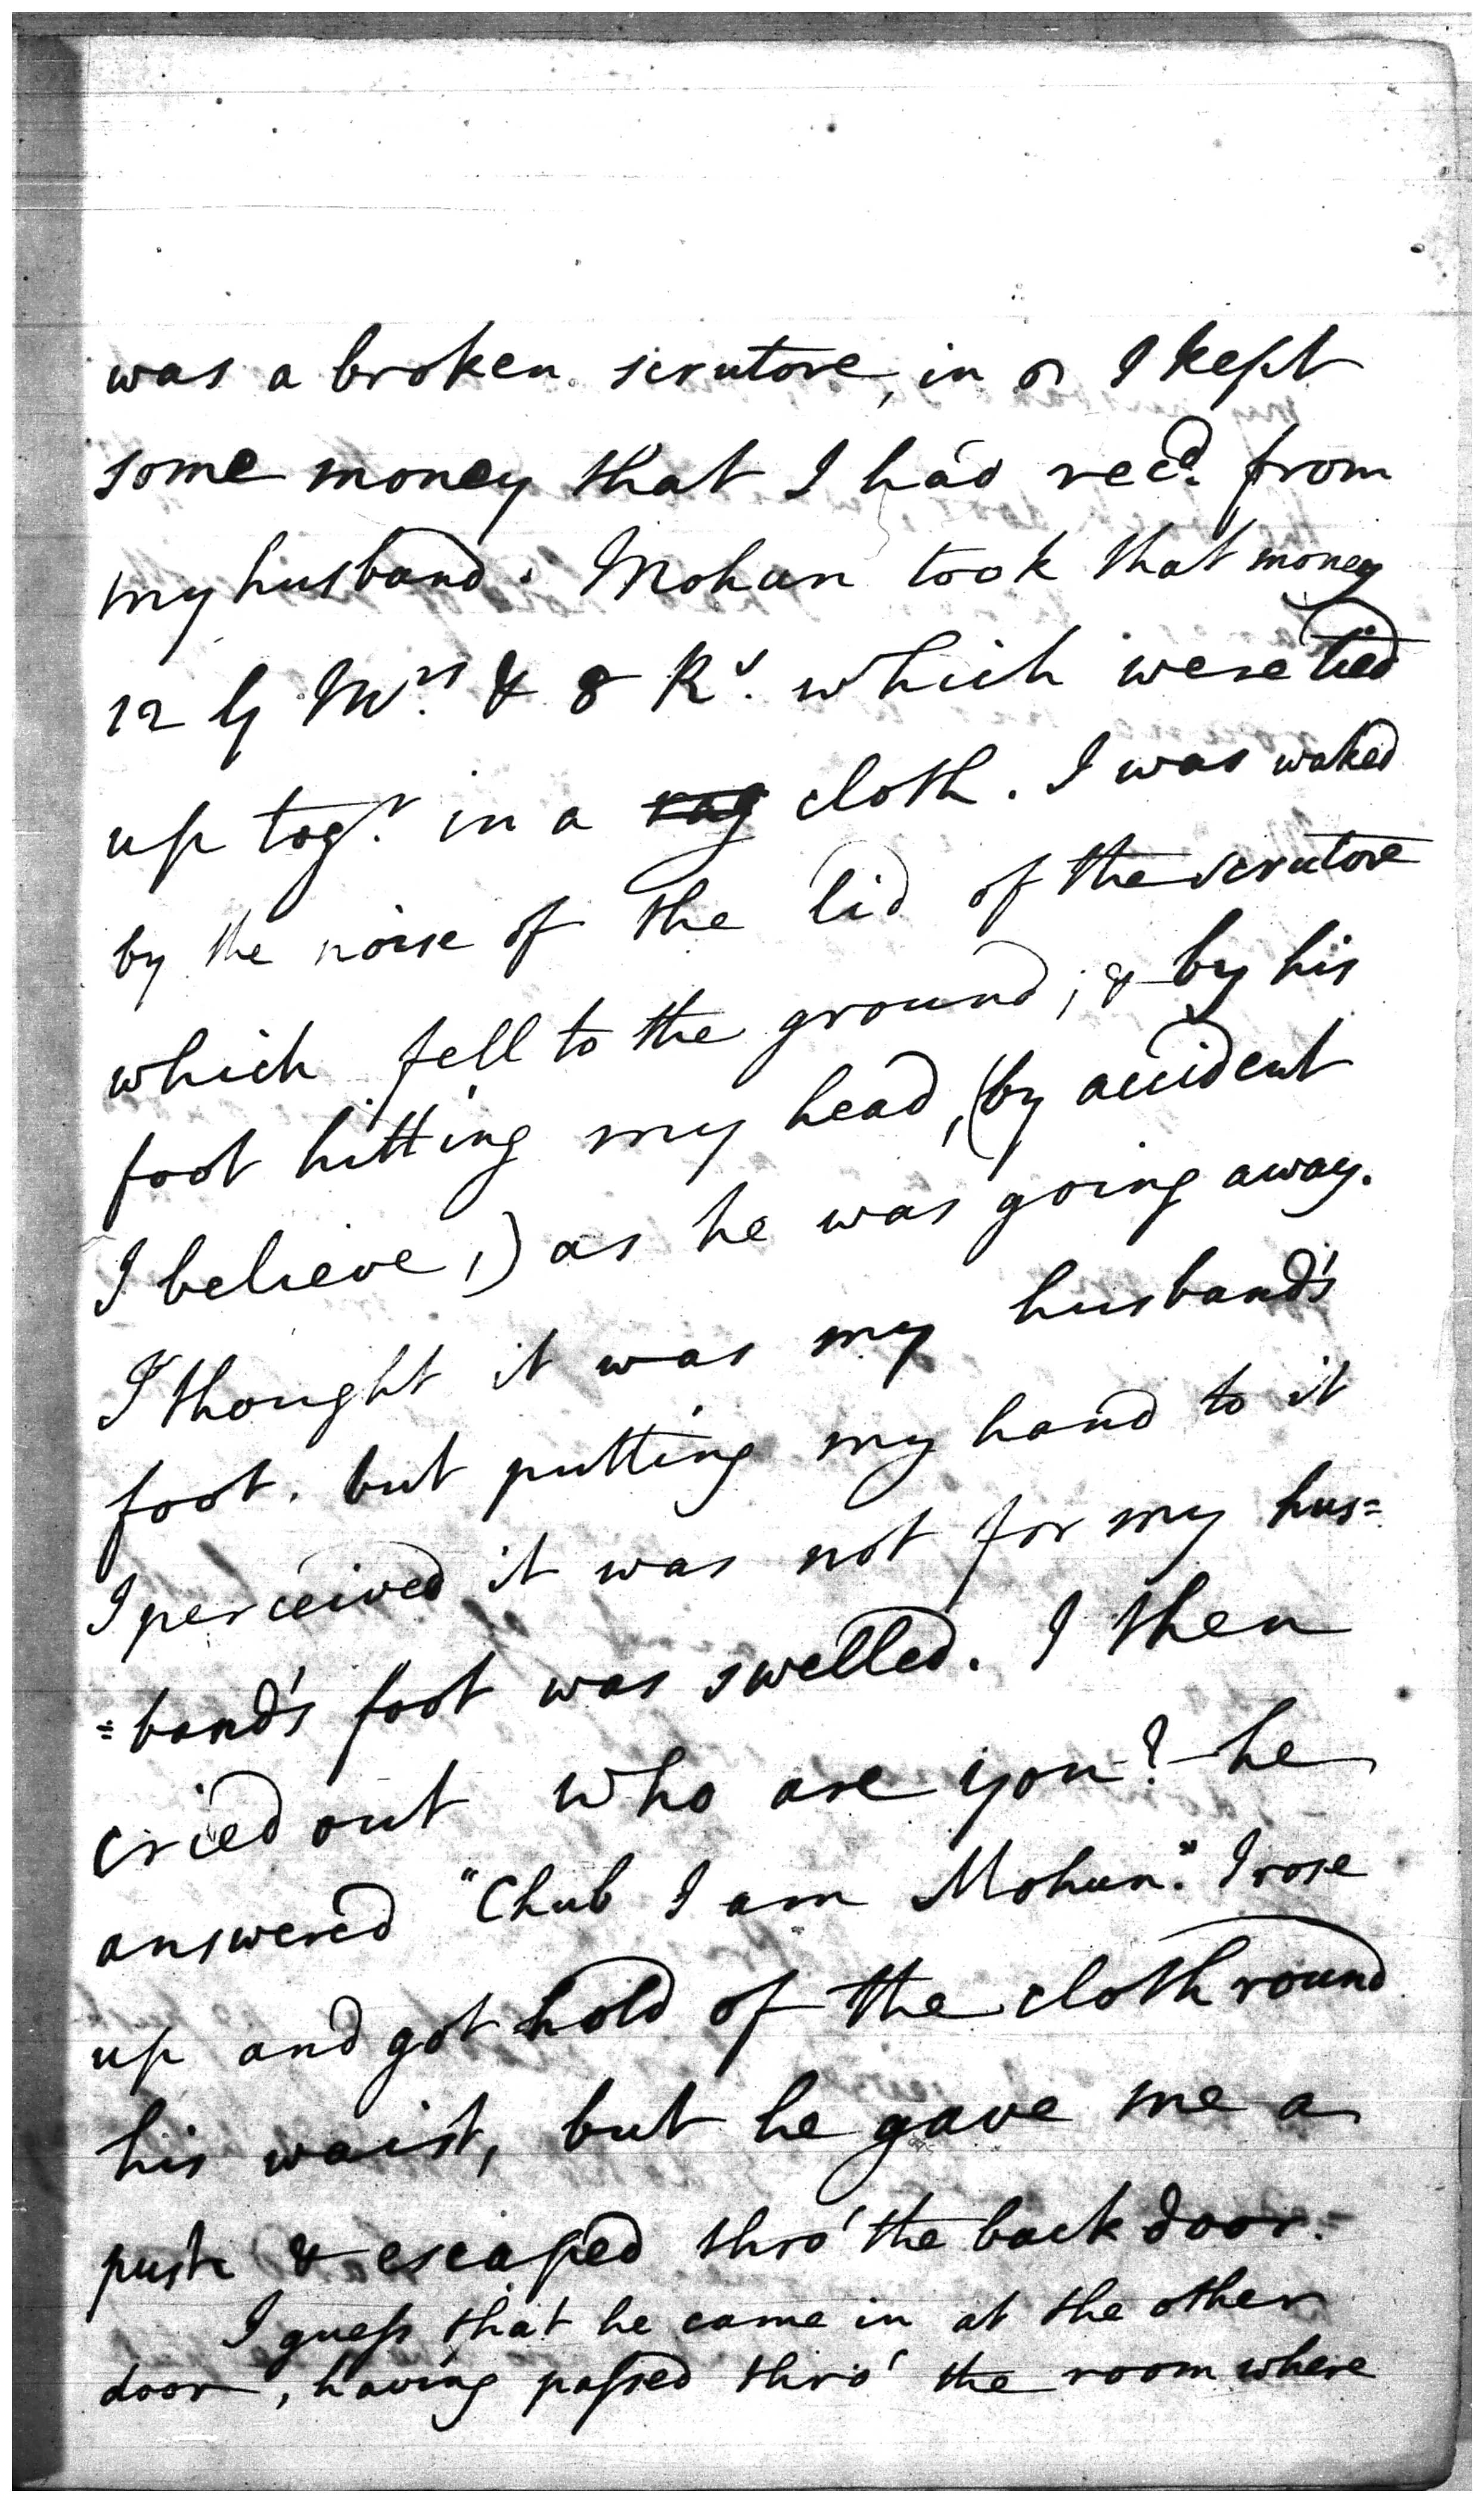 was a broken scrutore, in I kept
some money that I had recd. from
my husband. Mohun took that money
12 G Mrs. & 8 Rs. which were tied
up togr. in a rag cloth. I was waked
by the noise of the lid of the scrutore
which fell to the ground; & by his
foot hitting my head, (by accident
I believe,) as he was going away.
I thought it was my husband's
foot. but putting my hand to it
I perceived it was not for my hus=
=band's foot was swelled. I then
cried out who are you? he
answered "Chub I am Mohun." I rose
up and got hold of the cloth round
his waist, but he gave me a
push & escaped thro' the back door.
I guess that he came in at the other
door, having passed thro' the room where